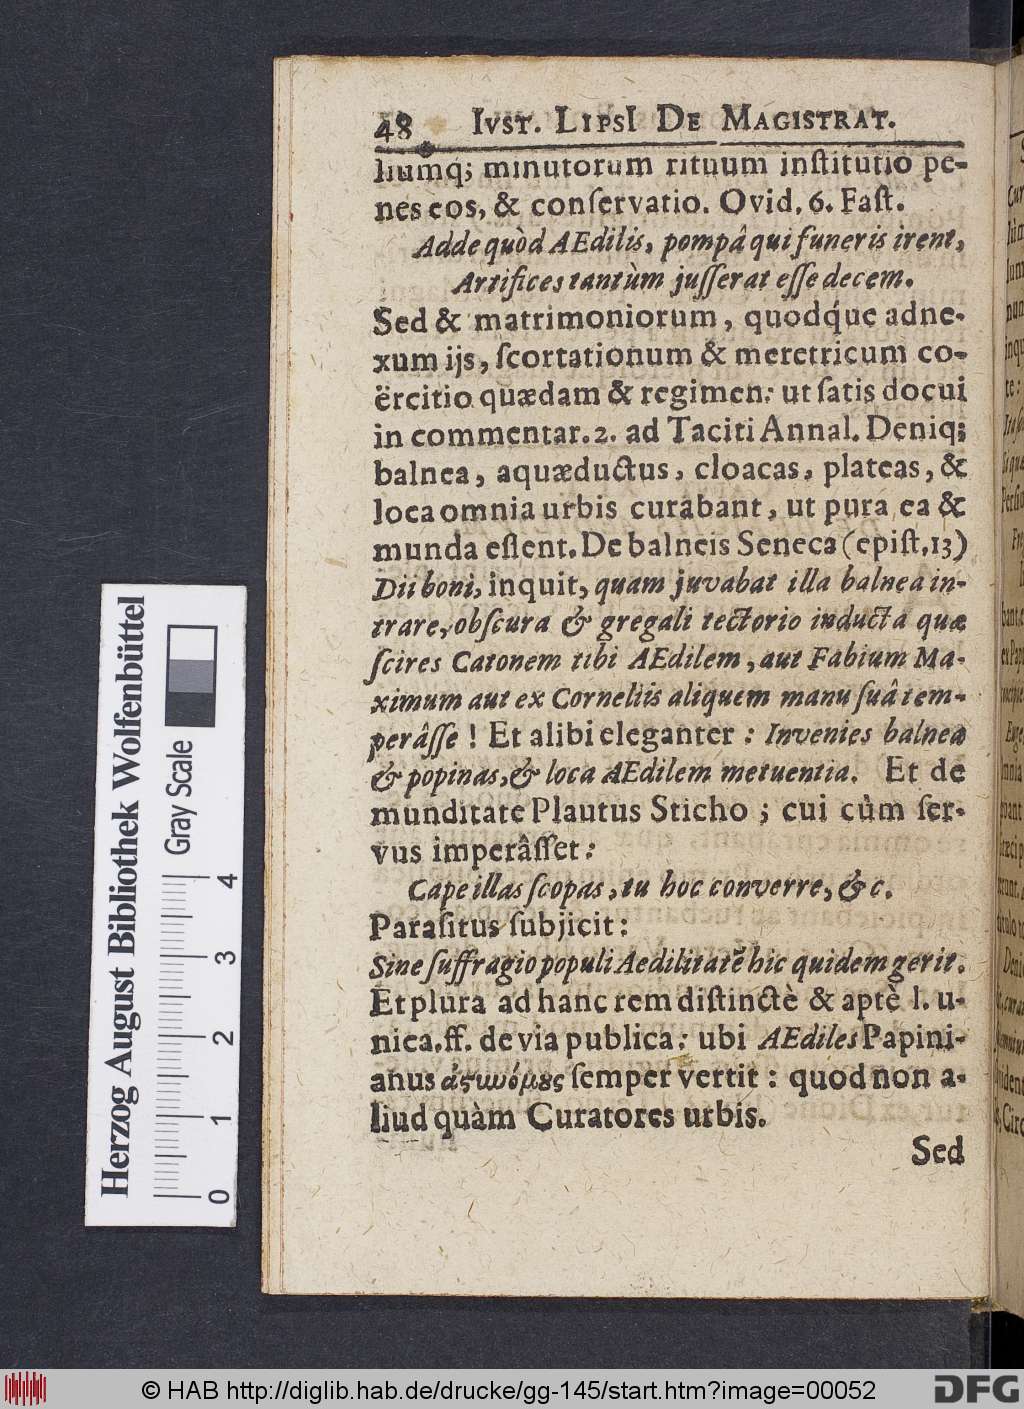 48 IVST. LIPSI DE MAGISTRAT.
liumq; minutorum rituum inſtitutio pe-
nes eos, & conſervatio. Ovid. 6. Faſt.
Adde quòd AEdilis, pompâ qui funeris irent,
Artifices tantùm juſſerat eſſe decem.
Sed & matrimoniorum, quodq́ue adne-
xum ijs, ſcortationum & meretricum co-
ërcitio quædam & regimen: ut ſatis docui
in commentar. 2. ad Taciti Annal. Deniq;
balnea, aquæductus, cloacas, plateas, &
loca omnia urbis curabant, ut pura ea &
munda eſſent. De balneis Seneca (epiſt. 13)
Dii boni, inquit, quam juvabat illa balnea in-
trare, obſcura & gregali tectorio inducta quæ
ſcires Catonem tibi AEdilem, aut Fabium Ma-
ximum aut ex Corneliis aliquem manu ſuâ tem-
perâſſe! Et alibi eleganter: Invenies balnea
& popinas, & loca AEdilem metuentia. Et de
munditate Plautus Sticho; cui cùm ſer-
vus imperâſſet:
Cape illas ſcopas, tu hoc converre, &c.
Paraſitus ſubjicit:
Sine ſuffragio populi Aedilitatē hic quidem gerit.
Et plura ad hanc rem diſtinctè & aptè l. u-
nica. ff. de via publica: ubi AEdiles Papini-
anus ἀϛυνόμȣς ſemper vertit: quod non a-
liud quàm Curatores urbis.
Sed
Herzog August Bibliothek Wolfenbüttel
Gray Scale
0 1 2 3 4
© HAB http://diglib.hab.de/drucke/gg-145/start.htm?image=00052
DFG